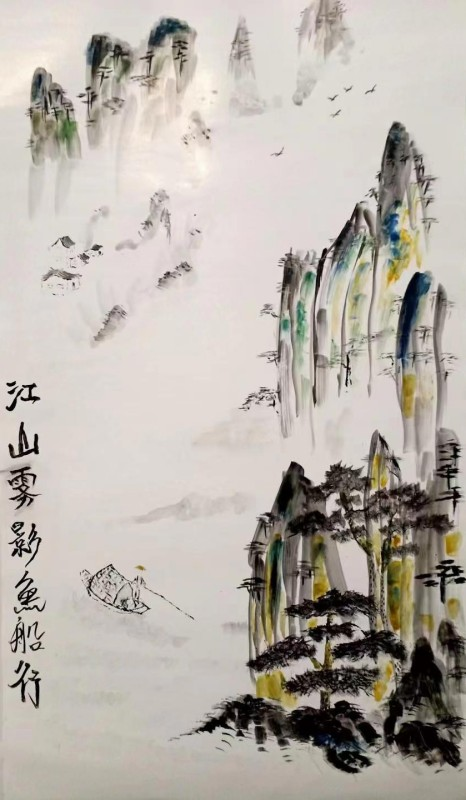 江山雾影魚船行